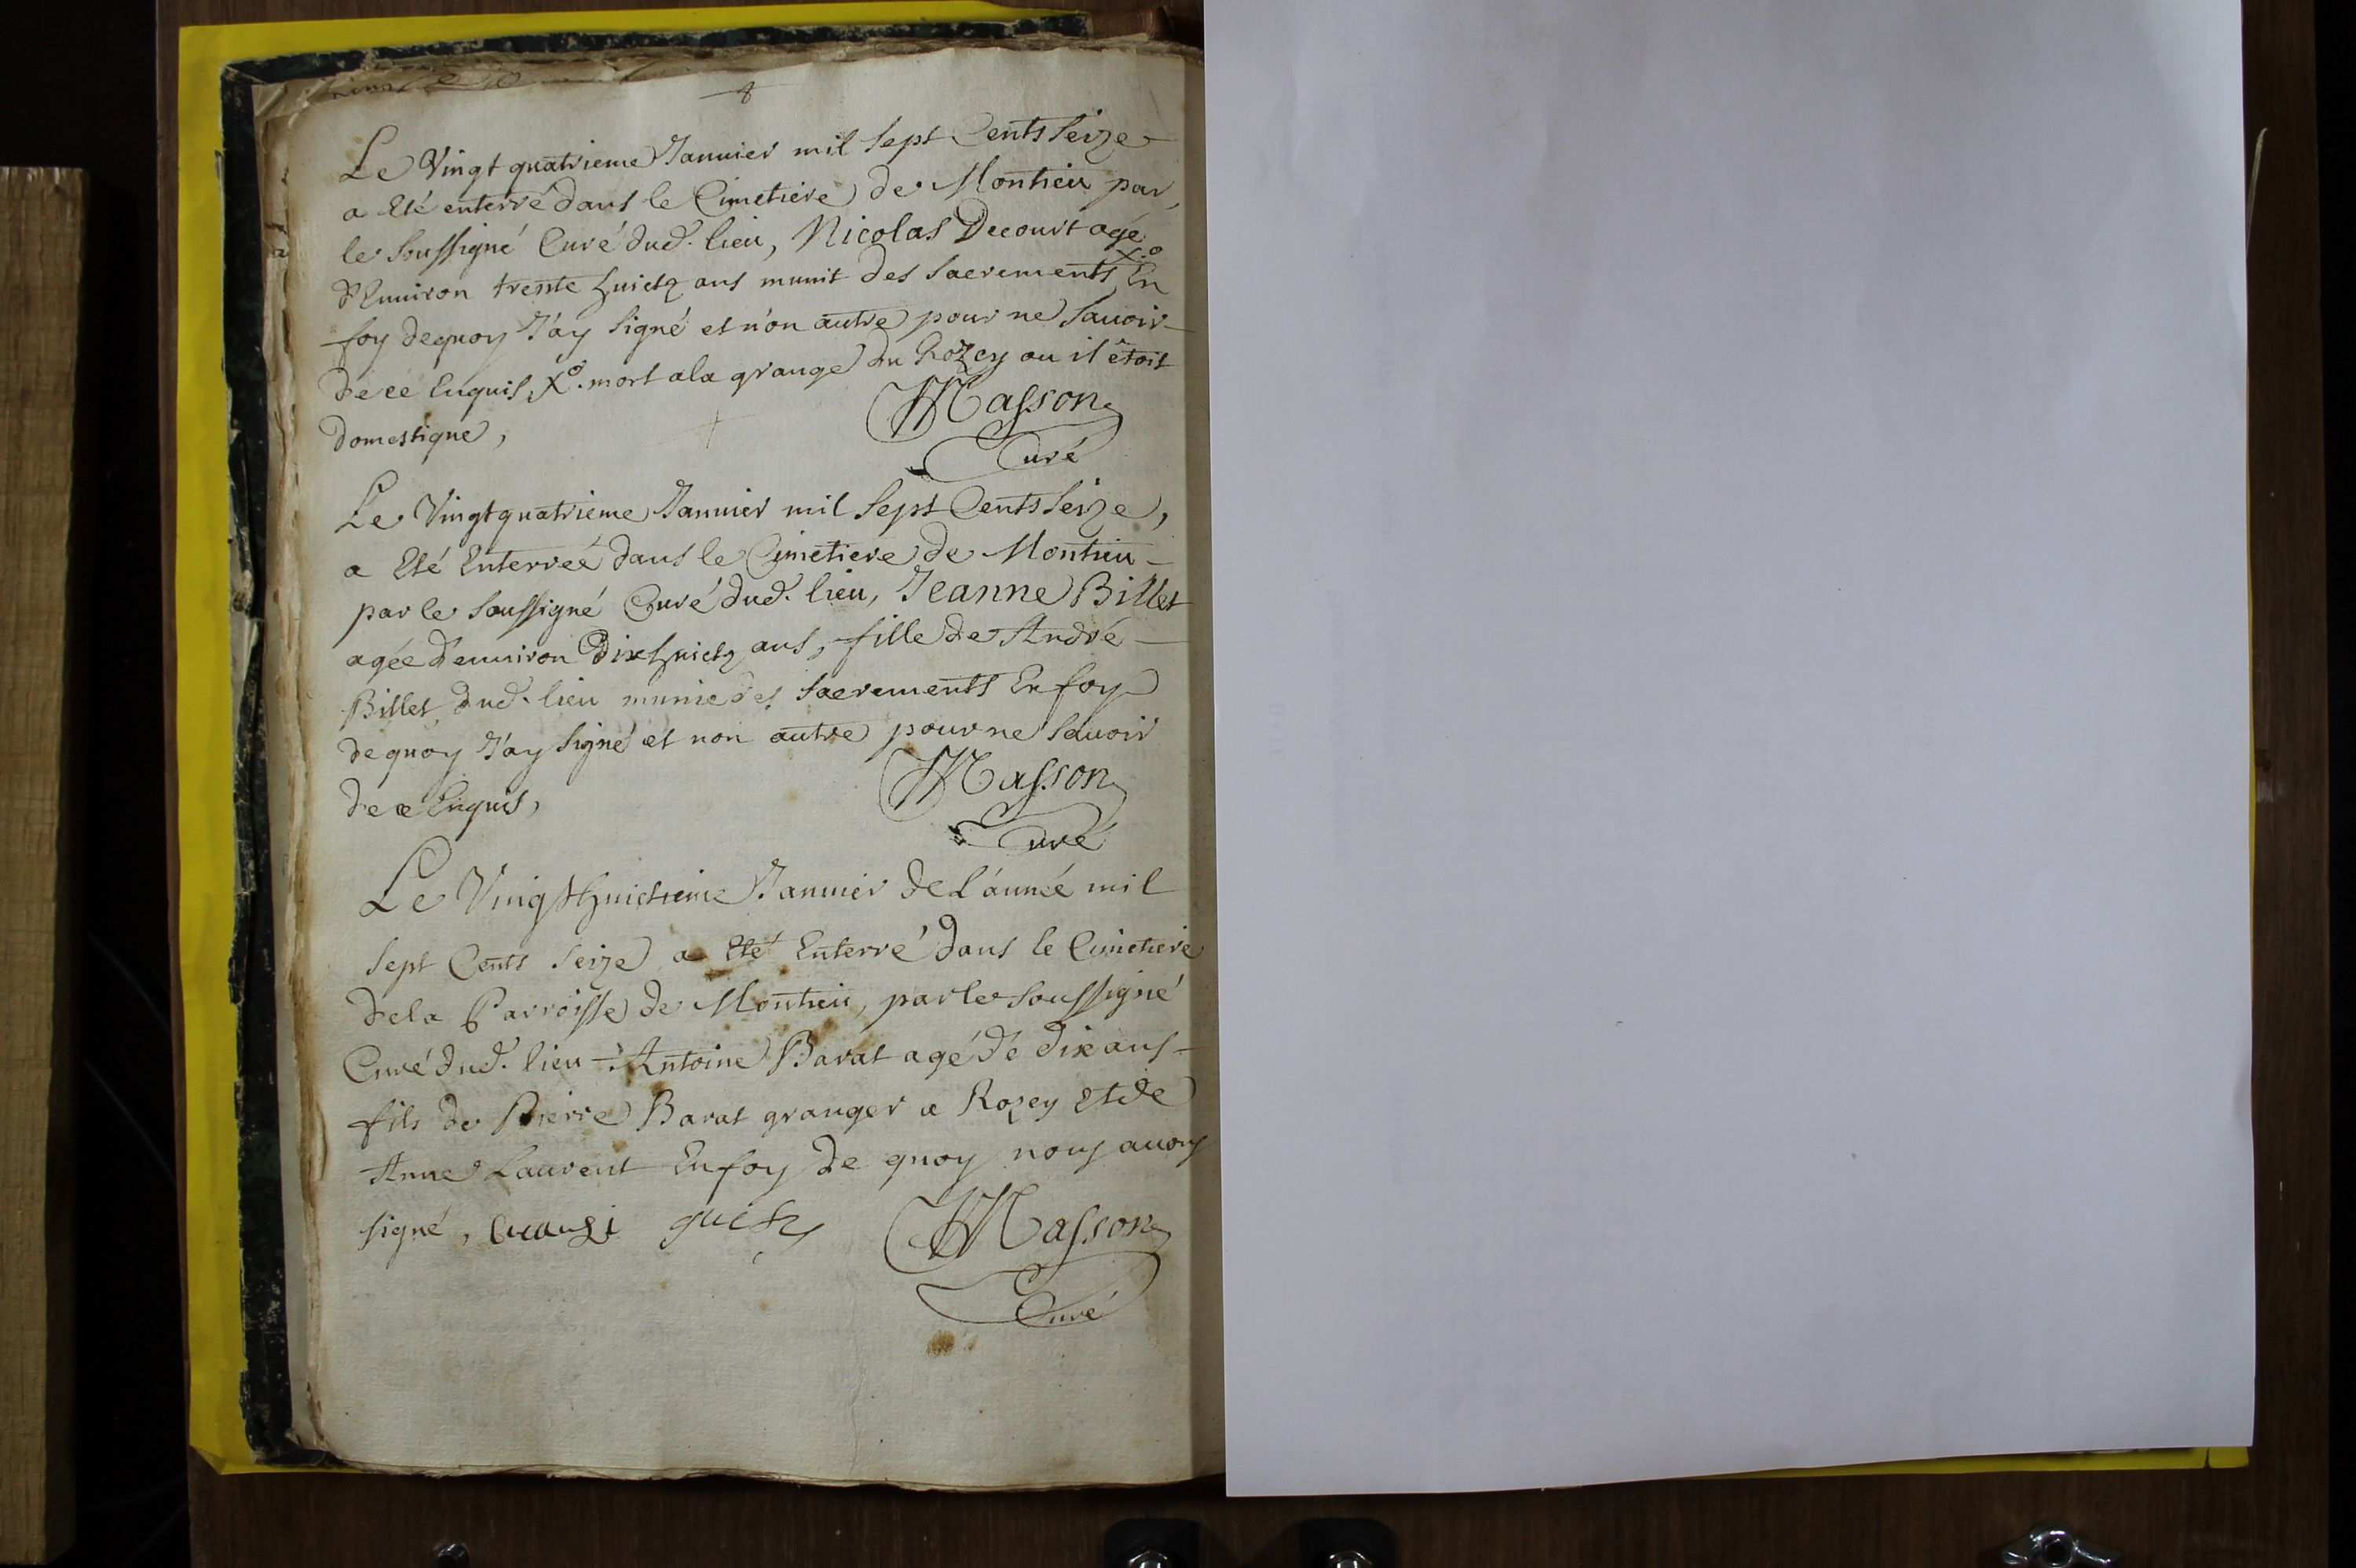 Le Vingt quatrieme Januier mil sept Cents seize
a Eté enterré dans le Cimetiere de Montieu par
le soussigné Curé dud. lieu, Nicolas Decourt agé
d'Enuiron trente huict ans munit des sacrements Xo. En
foy dequoy J'ay signé et n'on autre pour ne sauoir
de ce Enquis, Xo. mort a la grange du Rozey ou il êtoit
domestique,
Masson
Curé
Le Vingt quatrieme Januier mil sept Cents seize,
a Eté Enterreé dans le Cimetiere de Montieu
par le soussigné Curé dud. lieu, Jeanne Billet
agée d'enuiron Dix huict ans, fille de André
Billet dud. lieu munie des sacrements En foy
de quoy J'ay signé et non autre pour ne sauoir
de ce Enquis,
Masson
Curé
Le Vingt huictieme Januier de L'année mil
sept Cents seize a Eté Enterré dans le Cimetiere
de la Parroisse de Montieu, par le soussigné
Curé dud. lieu Antoine Barat agé de dix ans
fils de Pierre Barat granger a Rozey Et de
Anne Laurent En foy de quoy nous auons
signé,
Masson
Curé